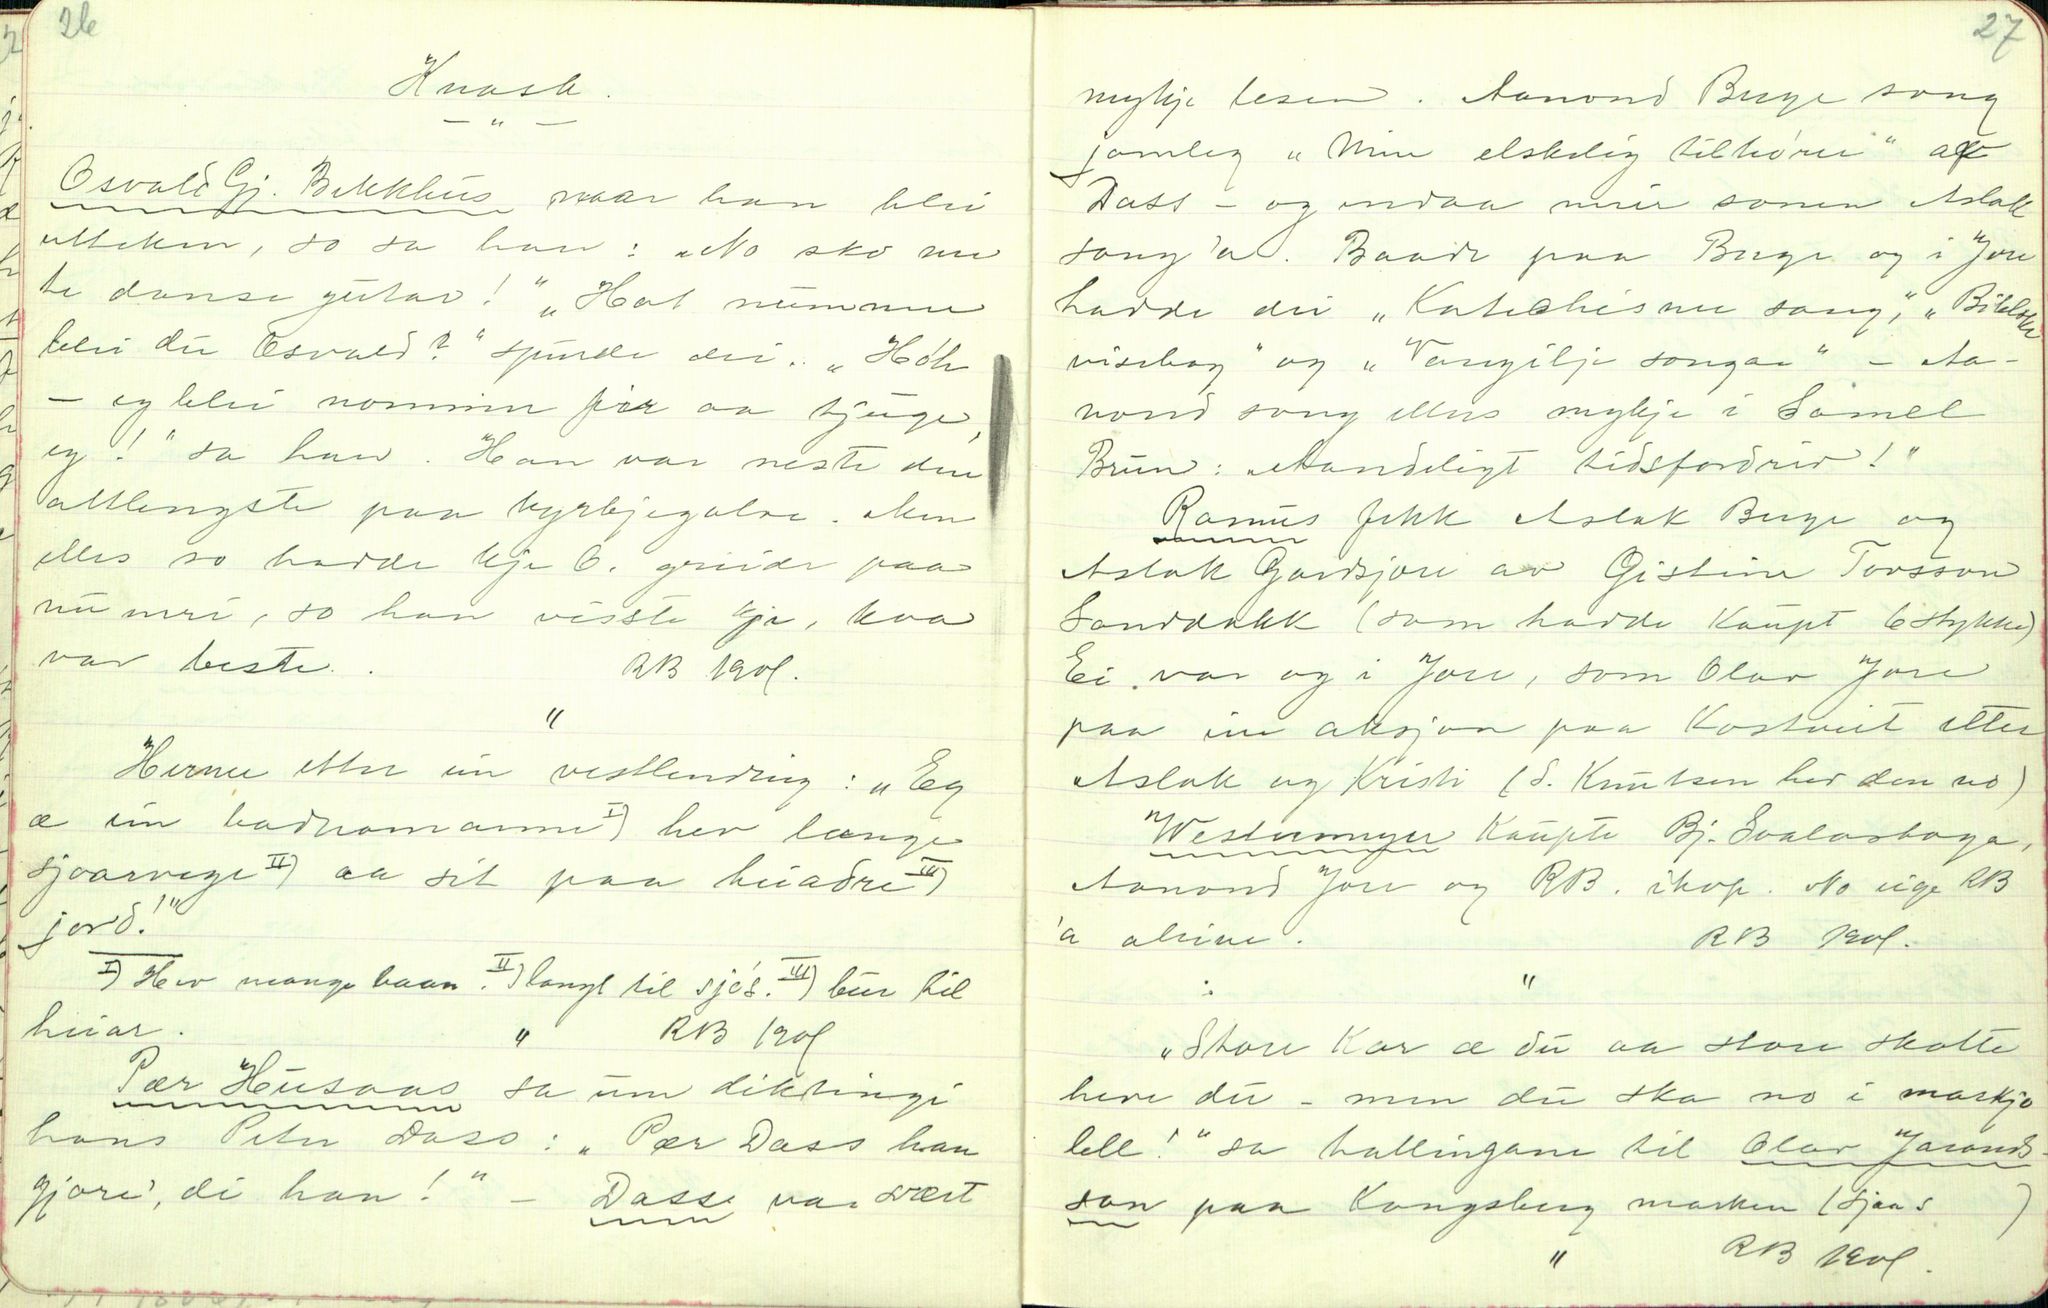 26
Knask.
— " —
Osvald Gj. Bekkhus naar han blei
utteken, so sa han: „No sko me
te danse gutar!" „Hot nummer
blei du Osvald?" spurde dei. „Hóh
— eg blei nommer fire aa tjuge,
eg!" sa han. Han var neste den
attlengste paa kyrkjegolve. Men
elles so hadde kje O. greide paa
numeri, so han visste kje, kva
var beste. RB 1901.
"
Herme etter ein vestlending: „Eg
æ ein badnamanne I) hev lange
sjoarvege II) aa sit paa heiadre III)
jord!"
I) Hev mange baan. II) langt til sjós. III) bur til
heiar. " RB 1901
Pær Husaas sa um diktingi
hans Peter Dass: „Pær Dass han
gjore', di han!" — Dasse var svært
27
mykje lesen. Aanond Berge song
jamleg „Min elskelig tilhører" av
Dass – og endaa meir sonen Aslak
song 'a. Baade paa Berge og i Jore
hadde dei „Katechisme sang", „Bibelske
visebog" og „Vangilje songar" – Aa-
nond song elles mykje i Samel
Brun: „Aandeligt tidsfordriv!"
Rasmus fekk Aslak Berge og
Aslak Gardsjore av Gistein Torsson
Sanddokk (som hadde kaupt 6 stykke)
Ei var og i Jore, som Olav Jore
paa ein aksjon paa Kostveit etter
Aslak og Kristi (S. Knutsen hev den no)
Westermeyer kaupte Bj. Svalastoga,
Aanond Jore og RB. ihop. No eige RB
'a aleine. RB 1901.
"
„Store kar æ du aa store skatte
heve du – men du ska no i maskjo
lell!" sa hallingane til Olav Jarands-
son paa Kongsberg marken (Sjaa s )
" RB 1901.